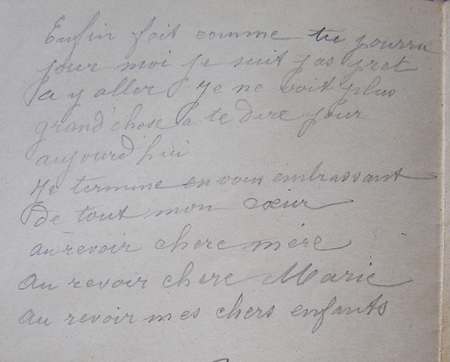 Enfin fait comme tu pourra
pour moi je suit pas pret
a y aller Je ne voit plus
grand chose a te dire pour
aujourd'hui
Je termine en vous embrassant
de tout mon cœur
au revoir chere mère
au revoir chere Marie
au revoir mes chers enfants